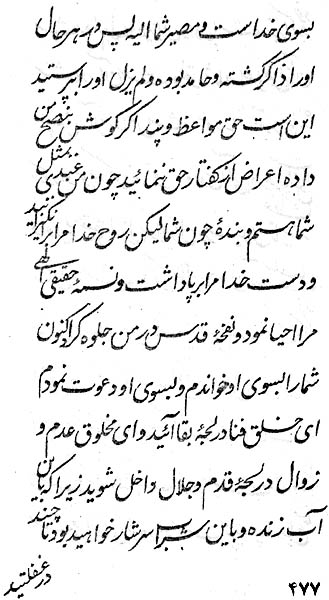 بسوی خداست و مصیر شما الیه پس در هر حال
او را ذاکر گشته و حامد بوده و لم یزل او را بپرستید
این است حق مواعظ و پند اگر گوش بنصح من
داده اعراض از گفتار حق ننمائید چون من عبدی مثل
شما هستم و بنده چون شما لیکن روح خدا مرا برانگیزانید
و دست خدا مرا بر پا داشت و نسمهٔ حقیقی الهی
مرا احیا نمود و نفحهٔ قدس در من جلوه کرد اکنون
شما را بسوی او خواندم و بسوی او دعوت نمودم
ای خلق فنا در لجهٔ بقا آئید و ای مخلوق عدم و
زوال در لجهٔ قدم و جلال داخل شوید زیرا که باین
آب زنده و باین شراب سرشار خواهید بود تا چند
در غفلتید
۴۷۷